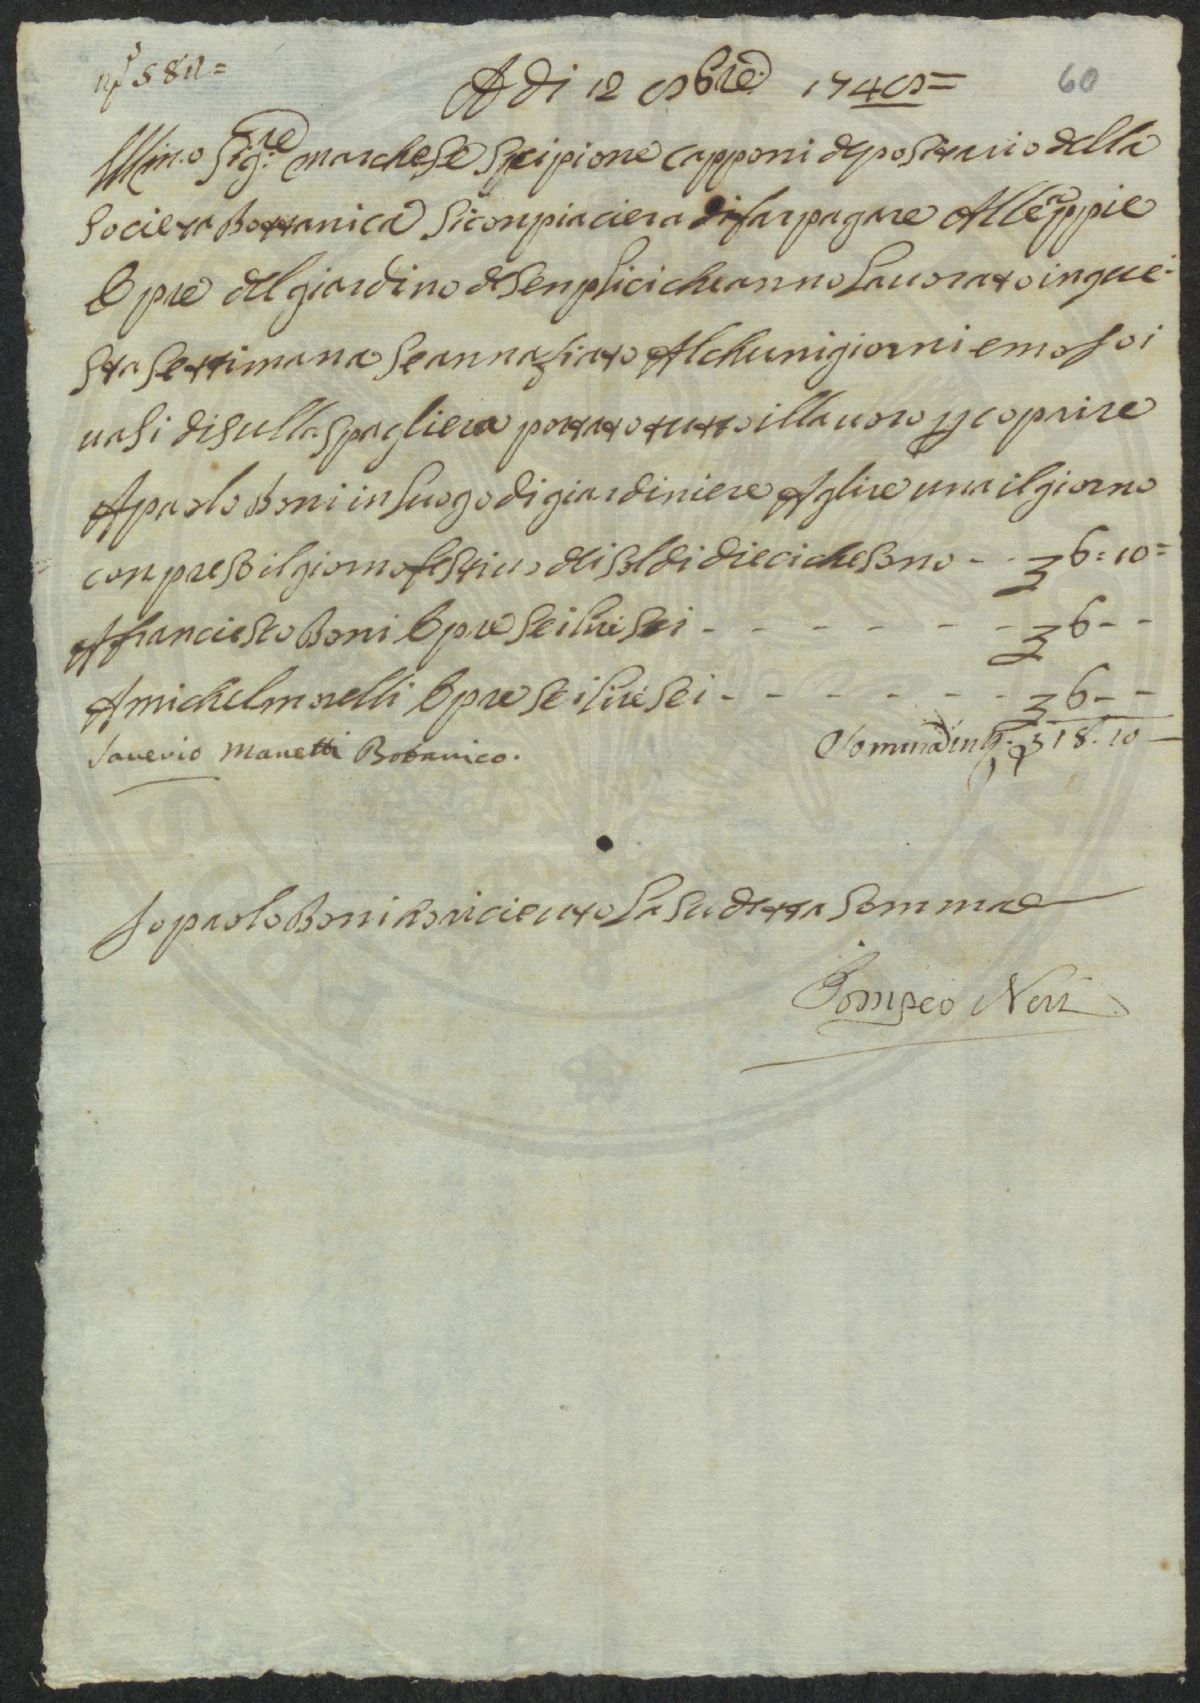 N.° 582=
A di 12 9bre 1749=
60
Illmo Sigre marchese Scipione capponi depositario della
Societa Bottanica Si conpiaciera di far pagare Alle appie
Opre del giardino de Senplici che anno Lauorato in que:
Sta Settimana Se annafiato Alchuni giorni e mossi
uasi di sulla Spagliera portato tutto il lauoro p coprire
A paolo Boni in Luogo di giardiniere A lire una il giorno
conpreso il giorno festiuo di soldi dieci che sono - - 6:10=
A franciesco Boni Opre Sei lire Sei - - - - - - 6 - -
A michel morelli Opre Sei lire Sei - - - - - - 6 - -
Sauerio Manetti Botanico.
18.10
Io paolo Boni ho riceuuto La Sudetta Somma
Pompeo Neri